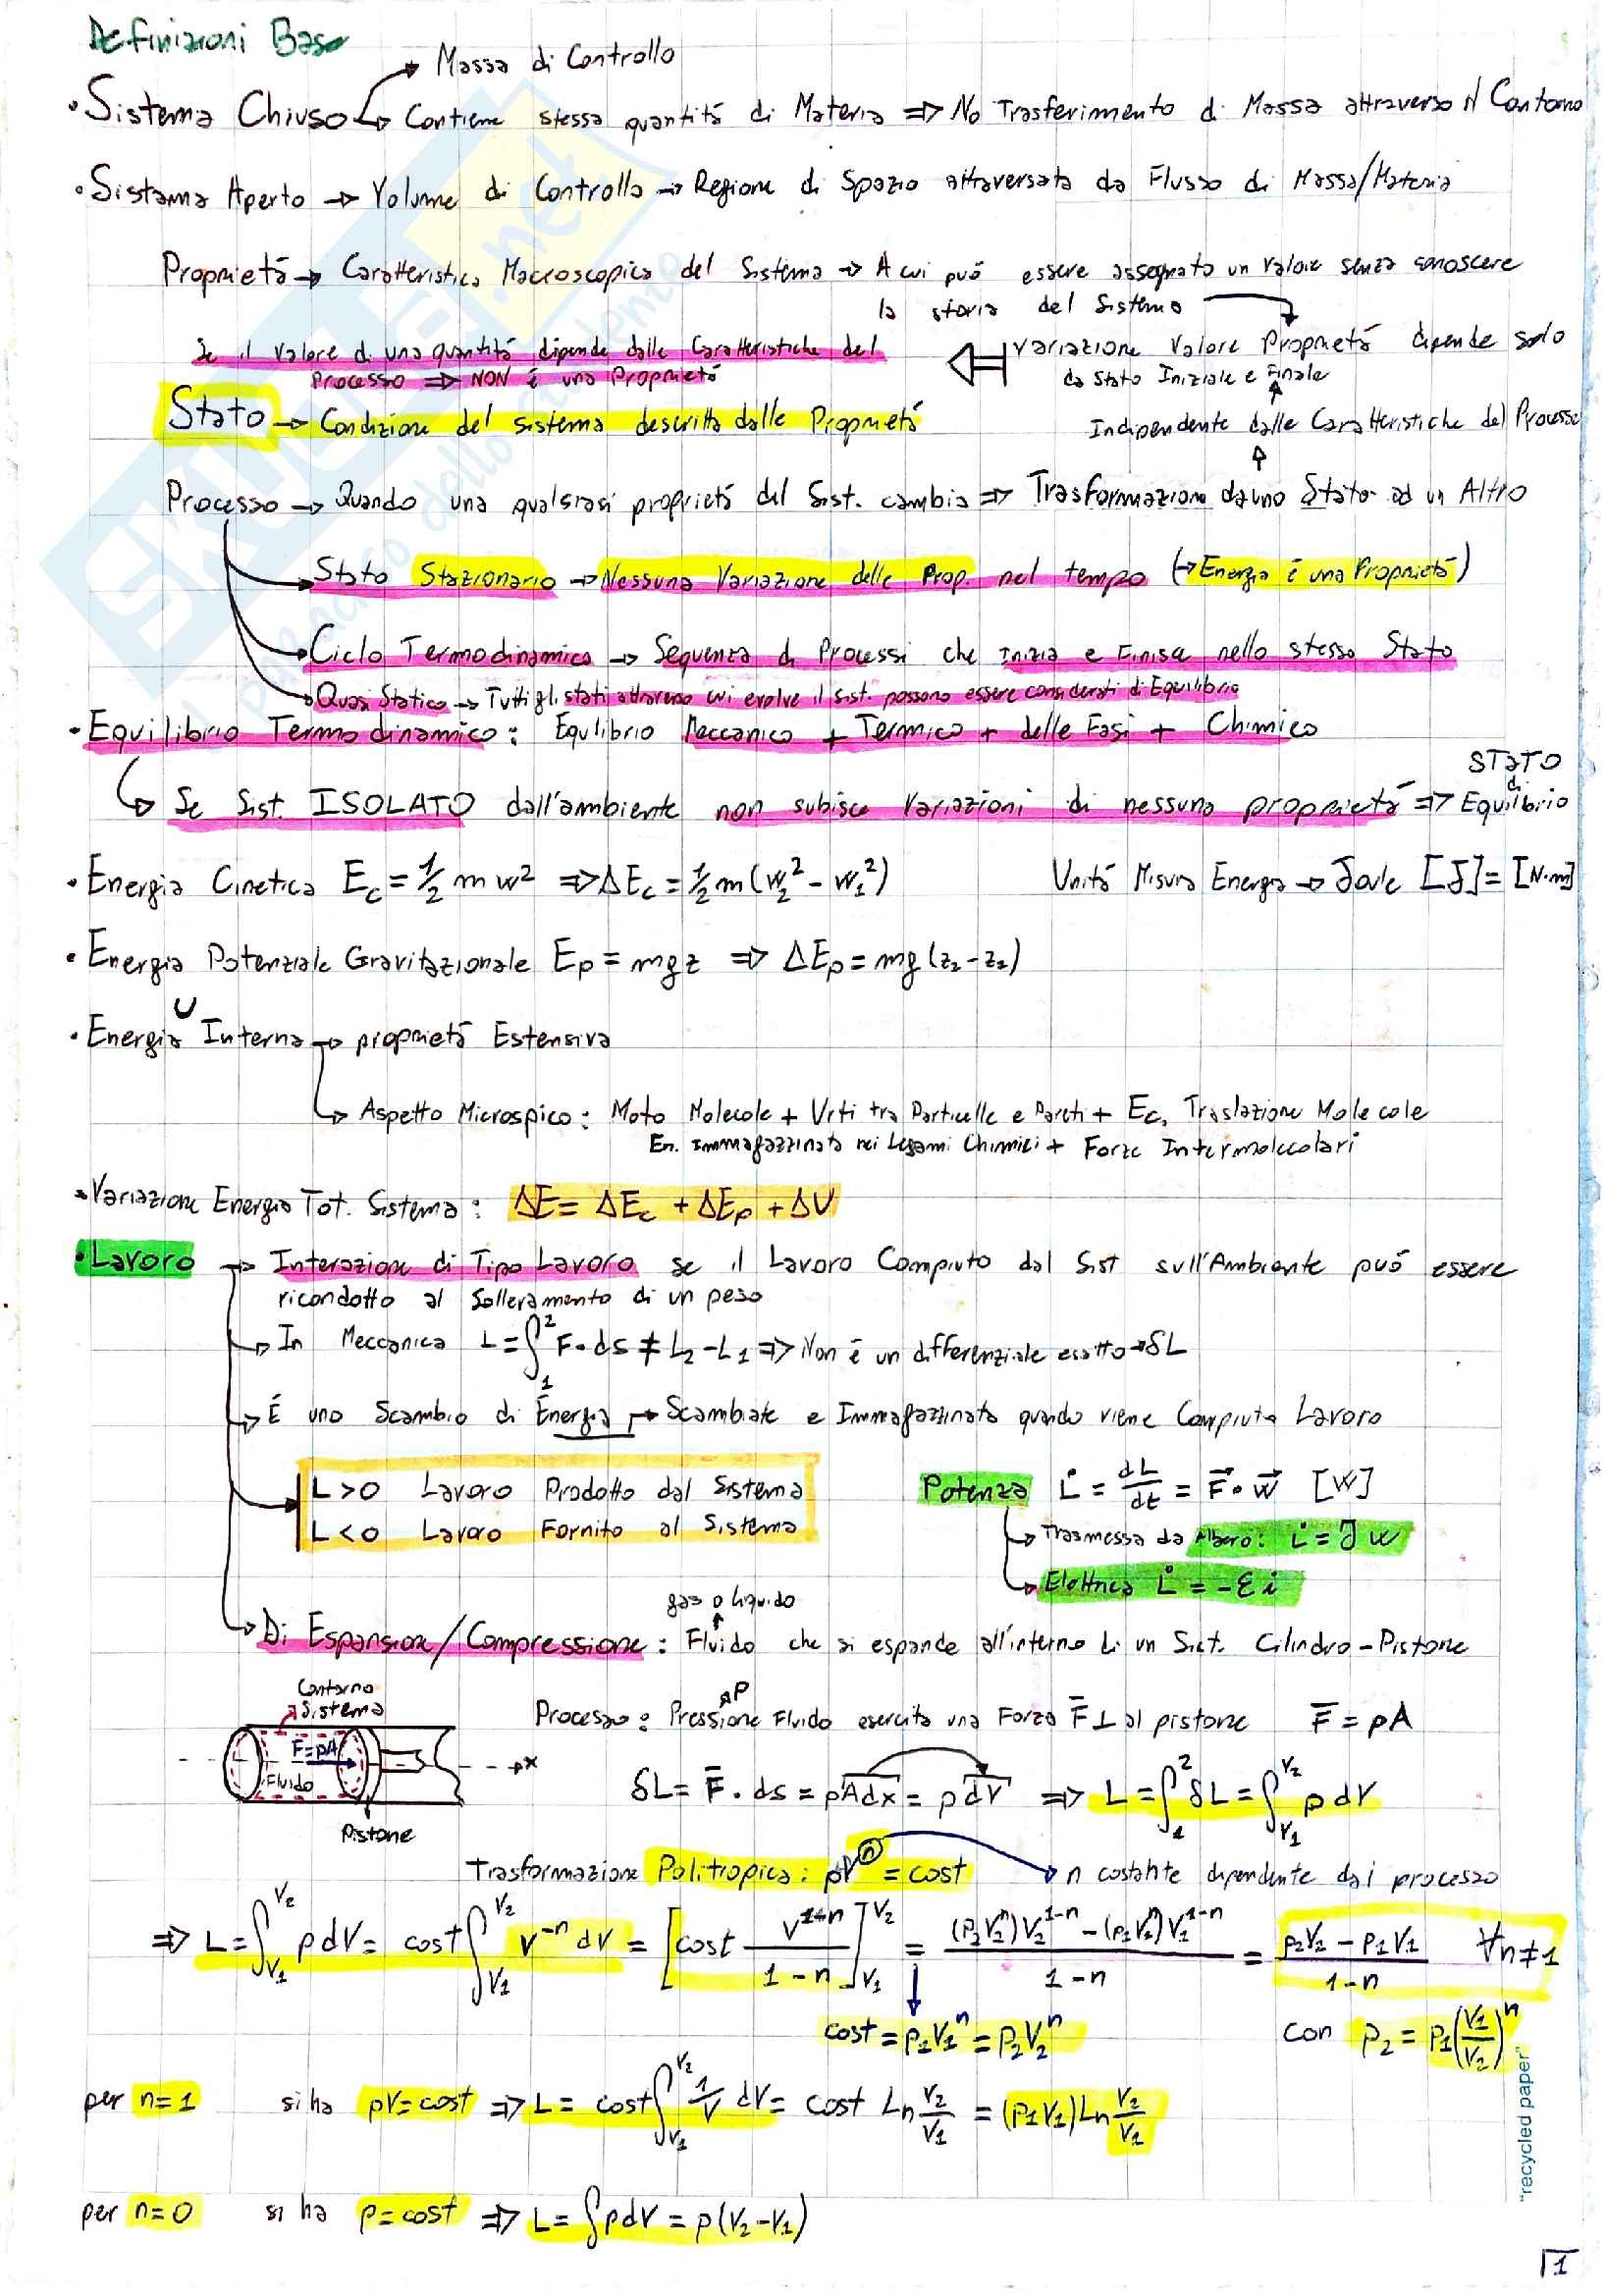 Definizioni Base
→ Massa di Controllo
• Sistema Chiuso → Contiene stessa quantità di Materia ⇒ No Trasferimento di Massa attraverso il Contorno
• Sistema Aperto → Volume di Controllo → Regione di Spazio attraversata da Flusso di Massa/Materia
Proprietà → Caratteristica Macroscopica del Sistema → A cui può essere assegnato un valore senza conoscere
la storia del Sistema
Se il valore di una quantità dipende dalle Caratteristiche del
Processo ⇒ NON è una Proprietà
Variazione Valore Proprietà dipende solo
da Stato Iniziale e Finale
Stato → Condizione del sistema descritta dalle Proprietà
Indipendente dalle Caratteristiche del Processo
Processo → Quando una qualsiasi proprietà del Sist. cambia ⇒ Trasformazione da uno Stato ad un Altro
Stato Stazionario → Nessuna Variazione delle Prop. nel tempo (→ Energia è una Proprietà)
Ciclo Termodinamico → Sequenza di Processi che inizia e Finisce nello stesso Stato
Quasi Statico → Tutti gli stati attraverso cui evolve il sist. possono essere considerati di Equilibrio
• Equilibrio Termodinamico: Equlibrio Meccanico + Termico + delle Fasi + Chimico
↳ Se Sist. ISOLATO dall'ambiente non subisce variazioni di nessuna proprietà ⇒ STATO di Equilibrio
• Energia Cinetica E_c = 1/2 m w² ⇒ ΔE_c = 1/2 m (w₂² - w₁²) Unità Misura Energia → Joule [J] = [N·m]
• Energia Potenziale Gravitazionale E_p = mgz ⇒ ΔE_p = mg (z₂ - z₂)
• Energia U Interna → proprietà Estensiva
↳ Aspetto Microspico: Moto Molecole + Urti tra Particelle e Pareti + Ec, Traslazione Molecole
En. Immagazzinata nei Legami Chimici + Forze Intermolecolari
• Variazione Energia Tot. Sistema: ΔE = ΔE_c + ΔE_p + ΔU
• Lavoro → Interazione di Tipo Lavoro se il Lavoro Compiuto dal Sist sull'Ambiente può essere
ricondotto al Sollevamento di un peso
→ In Meccanica L = ∫₁² F · ds ≠ L₂ - L₁ ⇒ Non è un differenziale esatto → δL
→ È uno Scambio di Energia → Scambiate e Immagazzinata quando viene Compiuta Lavoro
L > 0 Lavoro Prodotto dal Sistema
L < 0 Lavoro Fornito al Sistema
Potenza L̇ = dL/dt = F⃗ · w⃗ [W]
↳ Trasmessa da Albero: L̇ = J w
↳ Elettrica L̇ = -ε i
gas o liquido
↳ Di Espansione/Compressione: Fluido che si espande all'interno di un Sist. Cilindro-Pistone
Contorno Sistema
F=pA
Fluido
x
Pistone
Processo: Pressione P Fluido esercita una Forza F̄ ⊥ al pistone F̄ = pA
δL = F̄ · ds = pAdx = p dV ⇒ L = ∫₁² δL = ∫_V₁^V₂ p dV
Trasformazione Politropica: pVⁿ = cost → n costante dipendente dal processo
⇒ L = ∫_V₁^V₂ p dV = cost ∫_V₁^V₂ V⁻ⁿ dV = [cost V^(1-n)/(1-n)]_V₁^V₂ = ((P₂V₂ⁿ)V₂^(1-n) - (p₁V₁ⁿ)V₁^(1-n))/(1-n) = (p₂V₂ - p₁V₁)/(1-n) ∀n≠1
cost = p₁V₁ⁿ = p₂V₂ⁿ
con p₂ = p₁(V₁/V₂)ⁿ
per n=1 si ha pV=cost ⇒ L = cost ∫_V₁^V₂ 1/V dV = cost Ln V₂/V₁ = (p₁V₁) Ln V₂/V₁
per n=0 si ha p=cost ⇒ L = ∫pdV = p(V₂-V₁)
"recycled paper"
1
SKUOLA.net